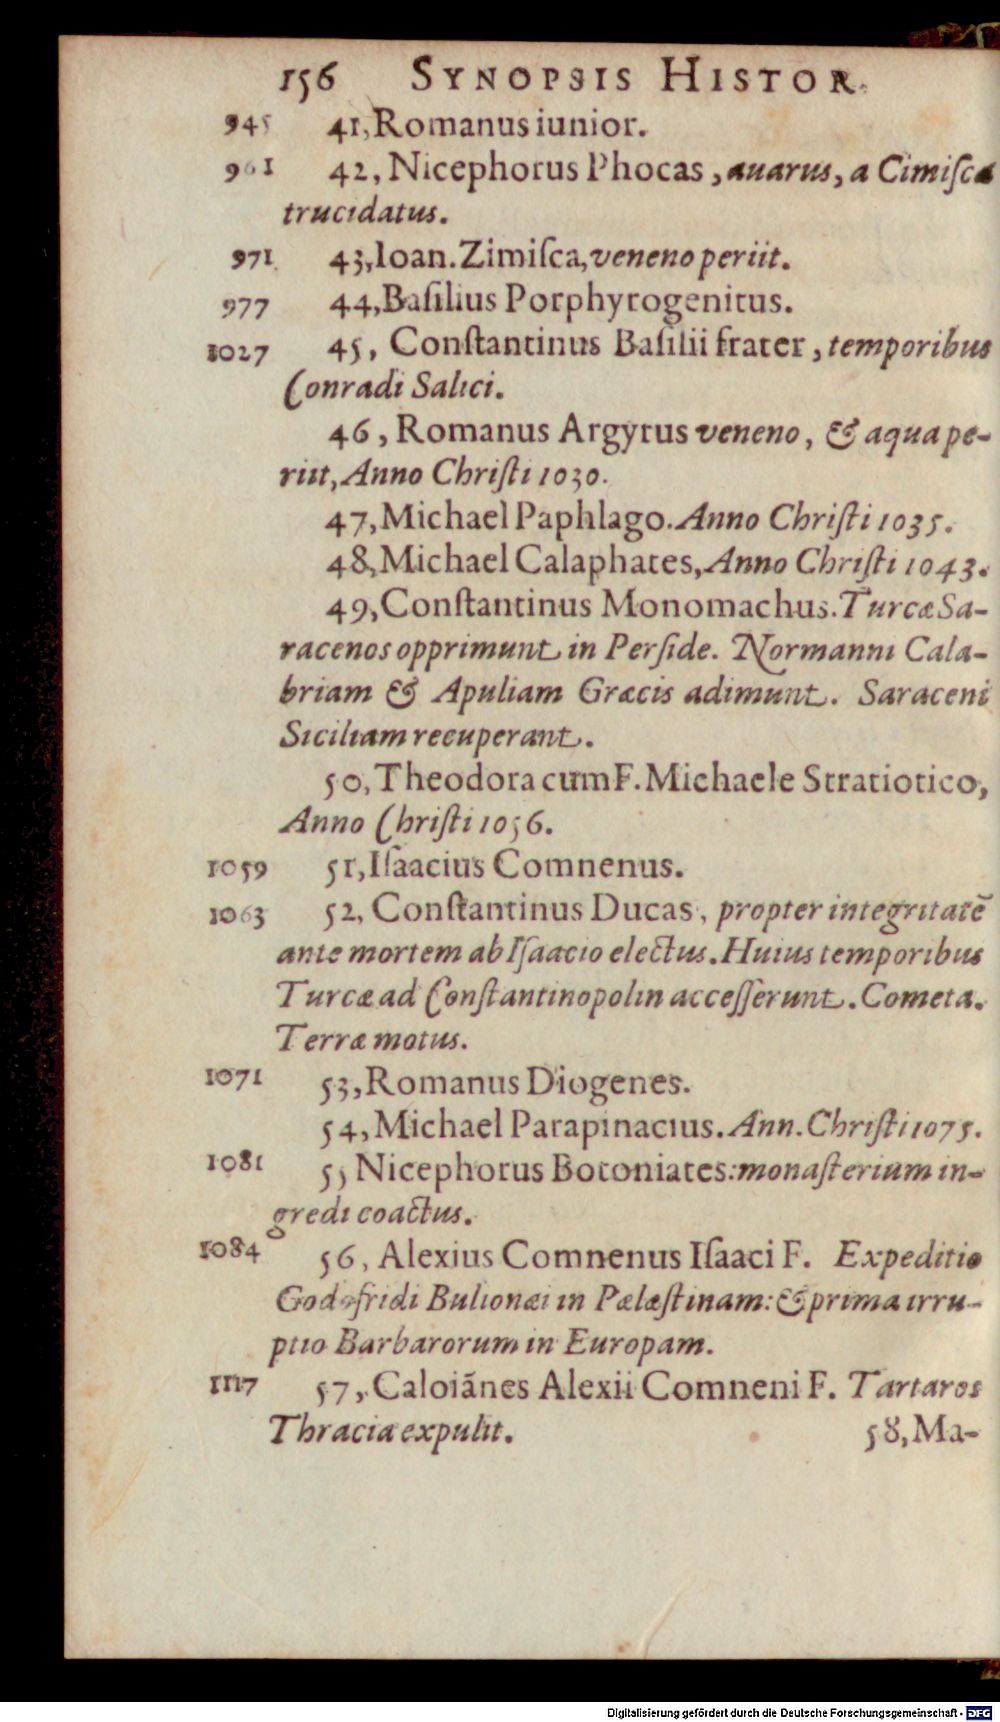 156 SYNOPSIS HISTOR.
945 41, Romanus iunior.
961 42, Nicephorus Phocas, auarus, a Cimiſca
trucidatus.
971 43, Ioan. Zimiſca, veneno periit.
977 44, Baſilius Porphyrogenitus.
1027 45, Conſtantinus Baſilii frater, temporibus
Conradi Salici.
46, Romanus Argyrus veneno, & aqua pe-
riit, Anno Chriſti 1030.
47, Michael Paphlago. Anno Chriſti 1035.
48, Michael Calaphates, Anno Chriſti 1043.
49, Conſtantinus Monomachus. Turcæ Sa-
racenos opprimunt in Perſide. Normanni Cala-
briam & Apuliam Græcis adimunt. Saraceni
Siciliam recuperant.
50, Theodora cum F. Michaele Stratiotico,
Anno Chriſti 1056.
1059 51, Iſaacius Comnenus.
1063 52, Conſtantinus Ducas, propter integritatē
ante mortem ab Iſaacio electus. Huius temporibus
Turcæ ad Conſtantinopolin acceſſerunt. Cometa.
Terræ motus.
1071 53, Romanus Diogenes.
54, Michael Parapinacius. Ann. Chriſti 1075.
1081 55 Nicephorus Botoniates: monaſterium in-
gredi coactus.
1084 56, Alexius Comnenus Iſaaci F. Expeditio
Godofridi Bulionæi in Pælæſtinam: & prima irru-
ptio Barbarorum in Europam.
1117 57, Caloiānes Alexii Comneni F. Tartaros
Thracia expulit. 58, Ma-
Digitalisierung gefördert durch die Deutsche Forschungsgemeinschaft - DFG